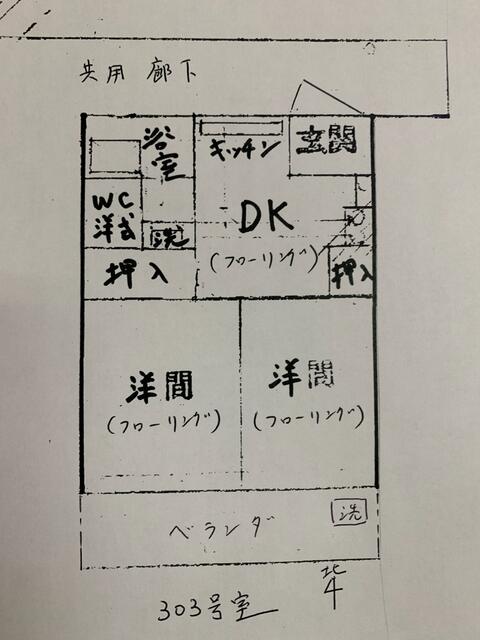 共用 廊下
浴室
キッチン
玄関
WC
洋式
洗
DK
(フローリング)
押入
押入
洋間
(フローリング)
洋間
(フローリング)
ベランダ
洗
303号室
北